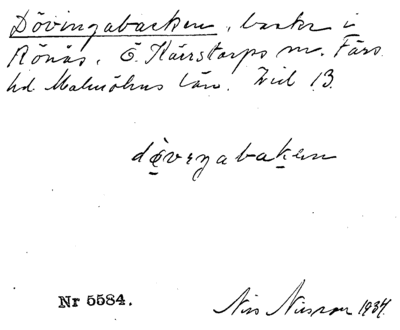 Dövingabacken, backe i
Rönås, Ö. Kärrstorps sn. Färs
hd. Malmöhus län. Bild 13.
dövẹngabakẹn
Nr 5584.
Nils Nilsson 1934.